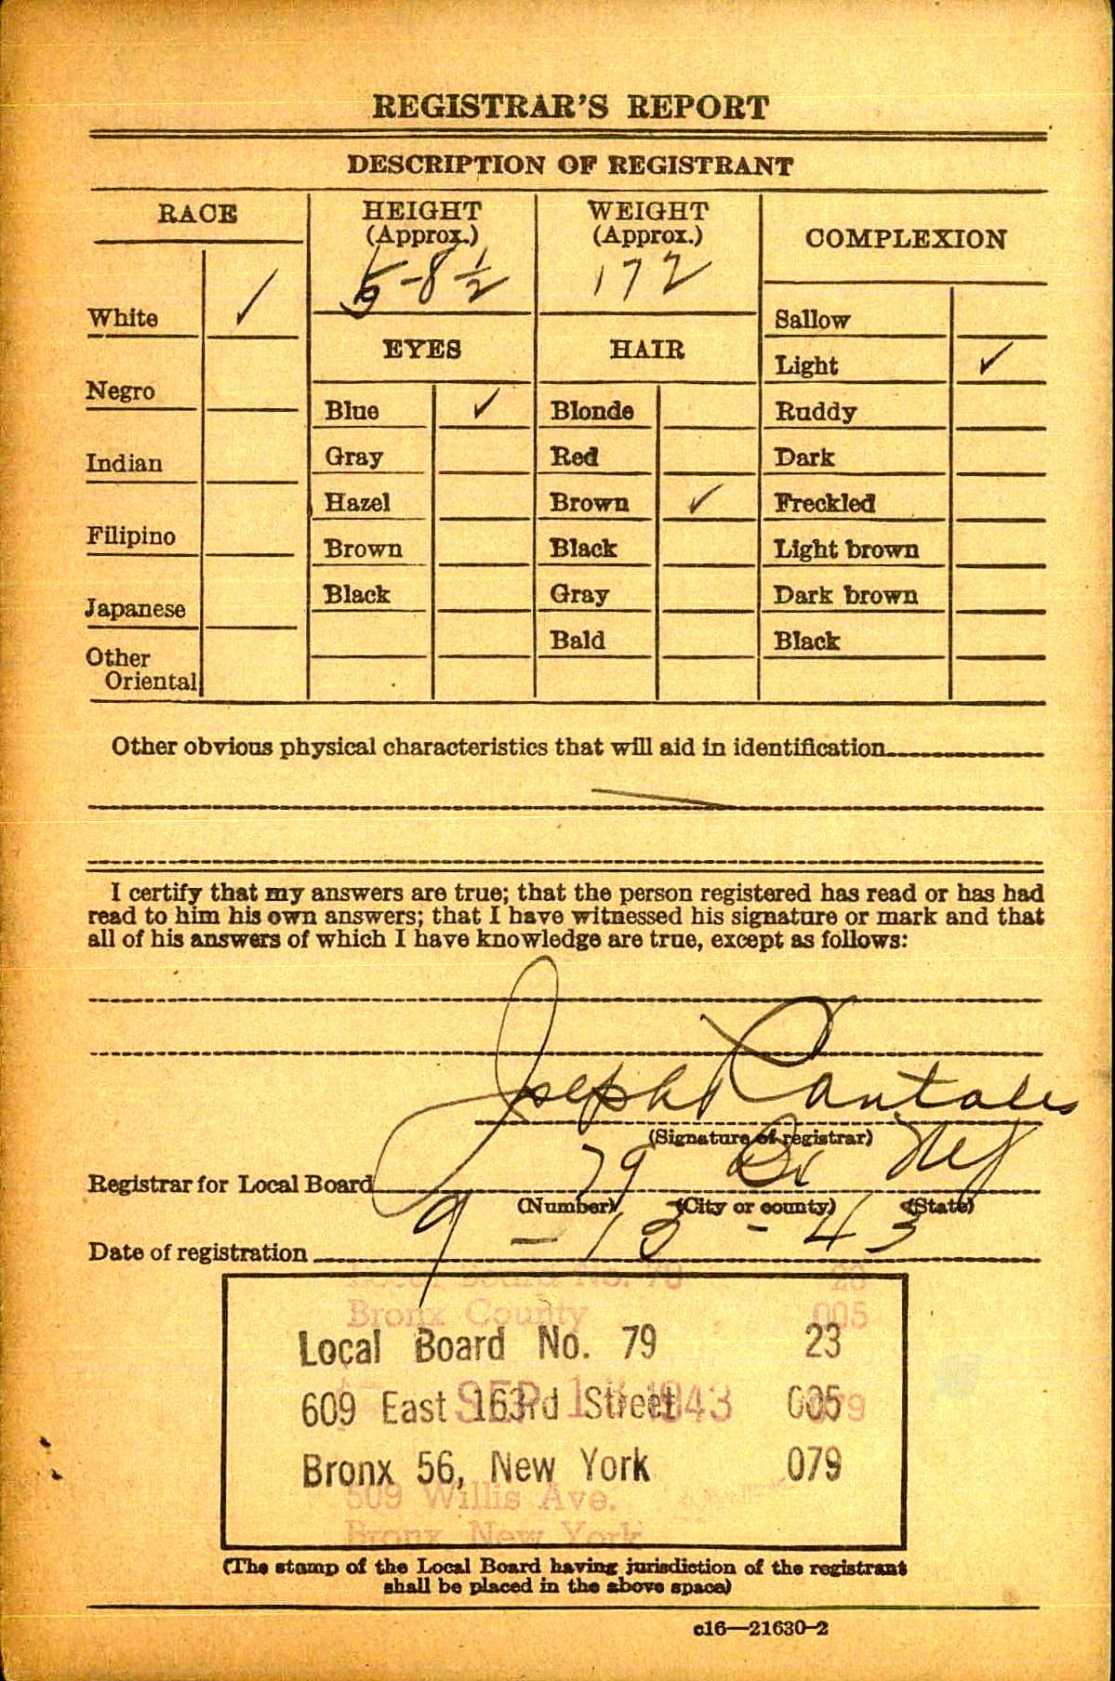 REGISTRAR'S REPORT
DESCRIPTION OF REGISTRANT
RACE
White ✓
Negro
Indian
Filipino
Japanese
Other
Oriental
HEIGHT
(Approx.)
5-8 1/2
WEIGHT
(Approx.)
172
COMPLEXION
EYES
Blue ✓
Gray
Hazel
Brown
Black
HAIR
Blonde
Red
Brown ✓
Black
Gray
Bald
Sallow
Light ✓
Ruddy
Dark
Freckled
Light brown
Dark brown
Black
Other obvious physical characteristics that will aid in identification
I certify that my answers are true; that the person registered has read or has had
read to him his own answers; that I have witnessed his signature or mark and that
all of his answers of which I have knowledge are true, except as follows:
Joseph
(Signature of registrar)
Registrar for Local Board 79
(Number) (City or county) (State)
Date of registration 9-13-43
Local Board No. 79 23
Bronx County 005
Local Board No. 79 23
609 East 163rd Street 005
SEP 13 1943 079
Bronx 56, New York 079
509 Willis Ave.
Bronx New York
(The stamp of the Local Board having jurisdiction of the registrant
shall be placed in the above space)
c16—21630-2